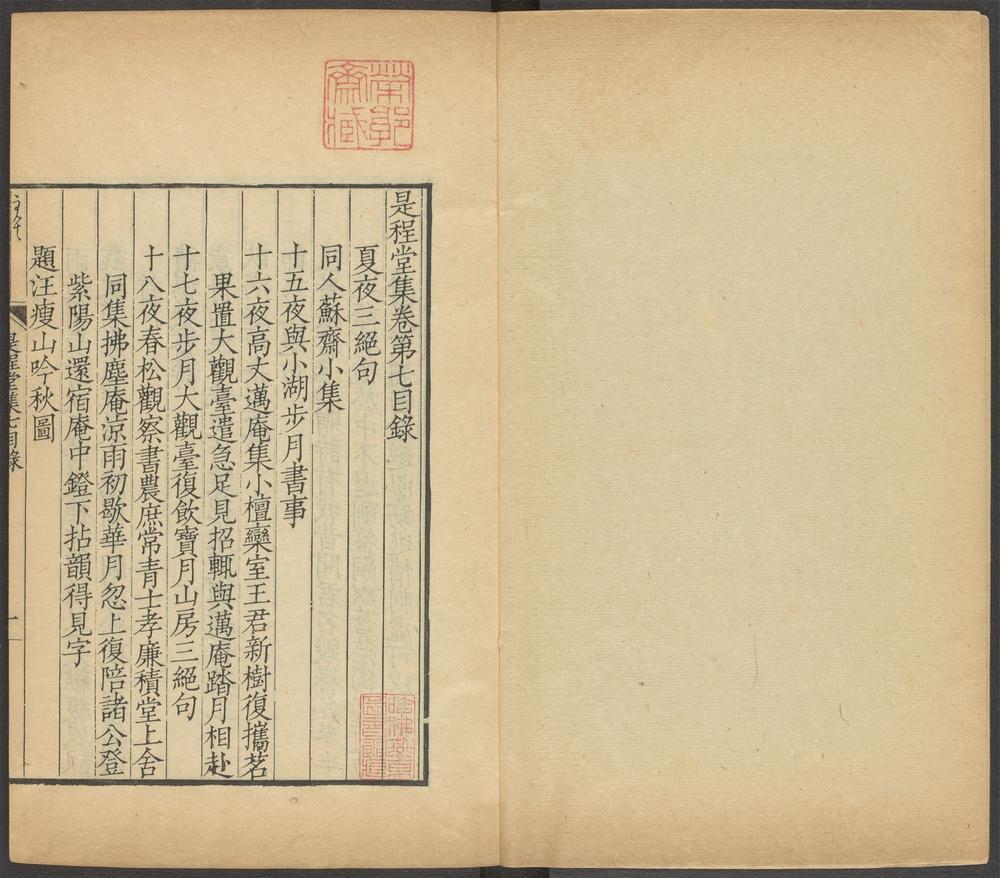 是程堂集卷第七目錄
夏夜三絕句
同人蘇齋小集
十五夜與小湖步月書事
十六夜高丈邁庵集小檀欒室王君新樹復攜茗
果置大觀臺遣急足見招輒與邁庵踏月相赴
十七夜步月大觀臺復飲寶月山房三絕句
十八夜春松觀察書農庶常青士孝廉積堂上舍
同集拂塵庵涼雨初歇華月忽上復陪諸公登
紫陽山還宿庵中鐙下拈韻得見字
題汪瘦山吟秋圖
是程堂集七目錄
一
哈佛燕京
圖書館藏